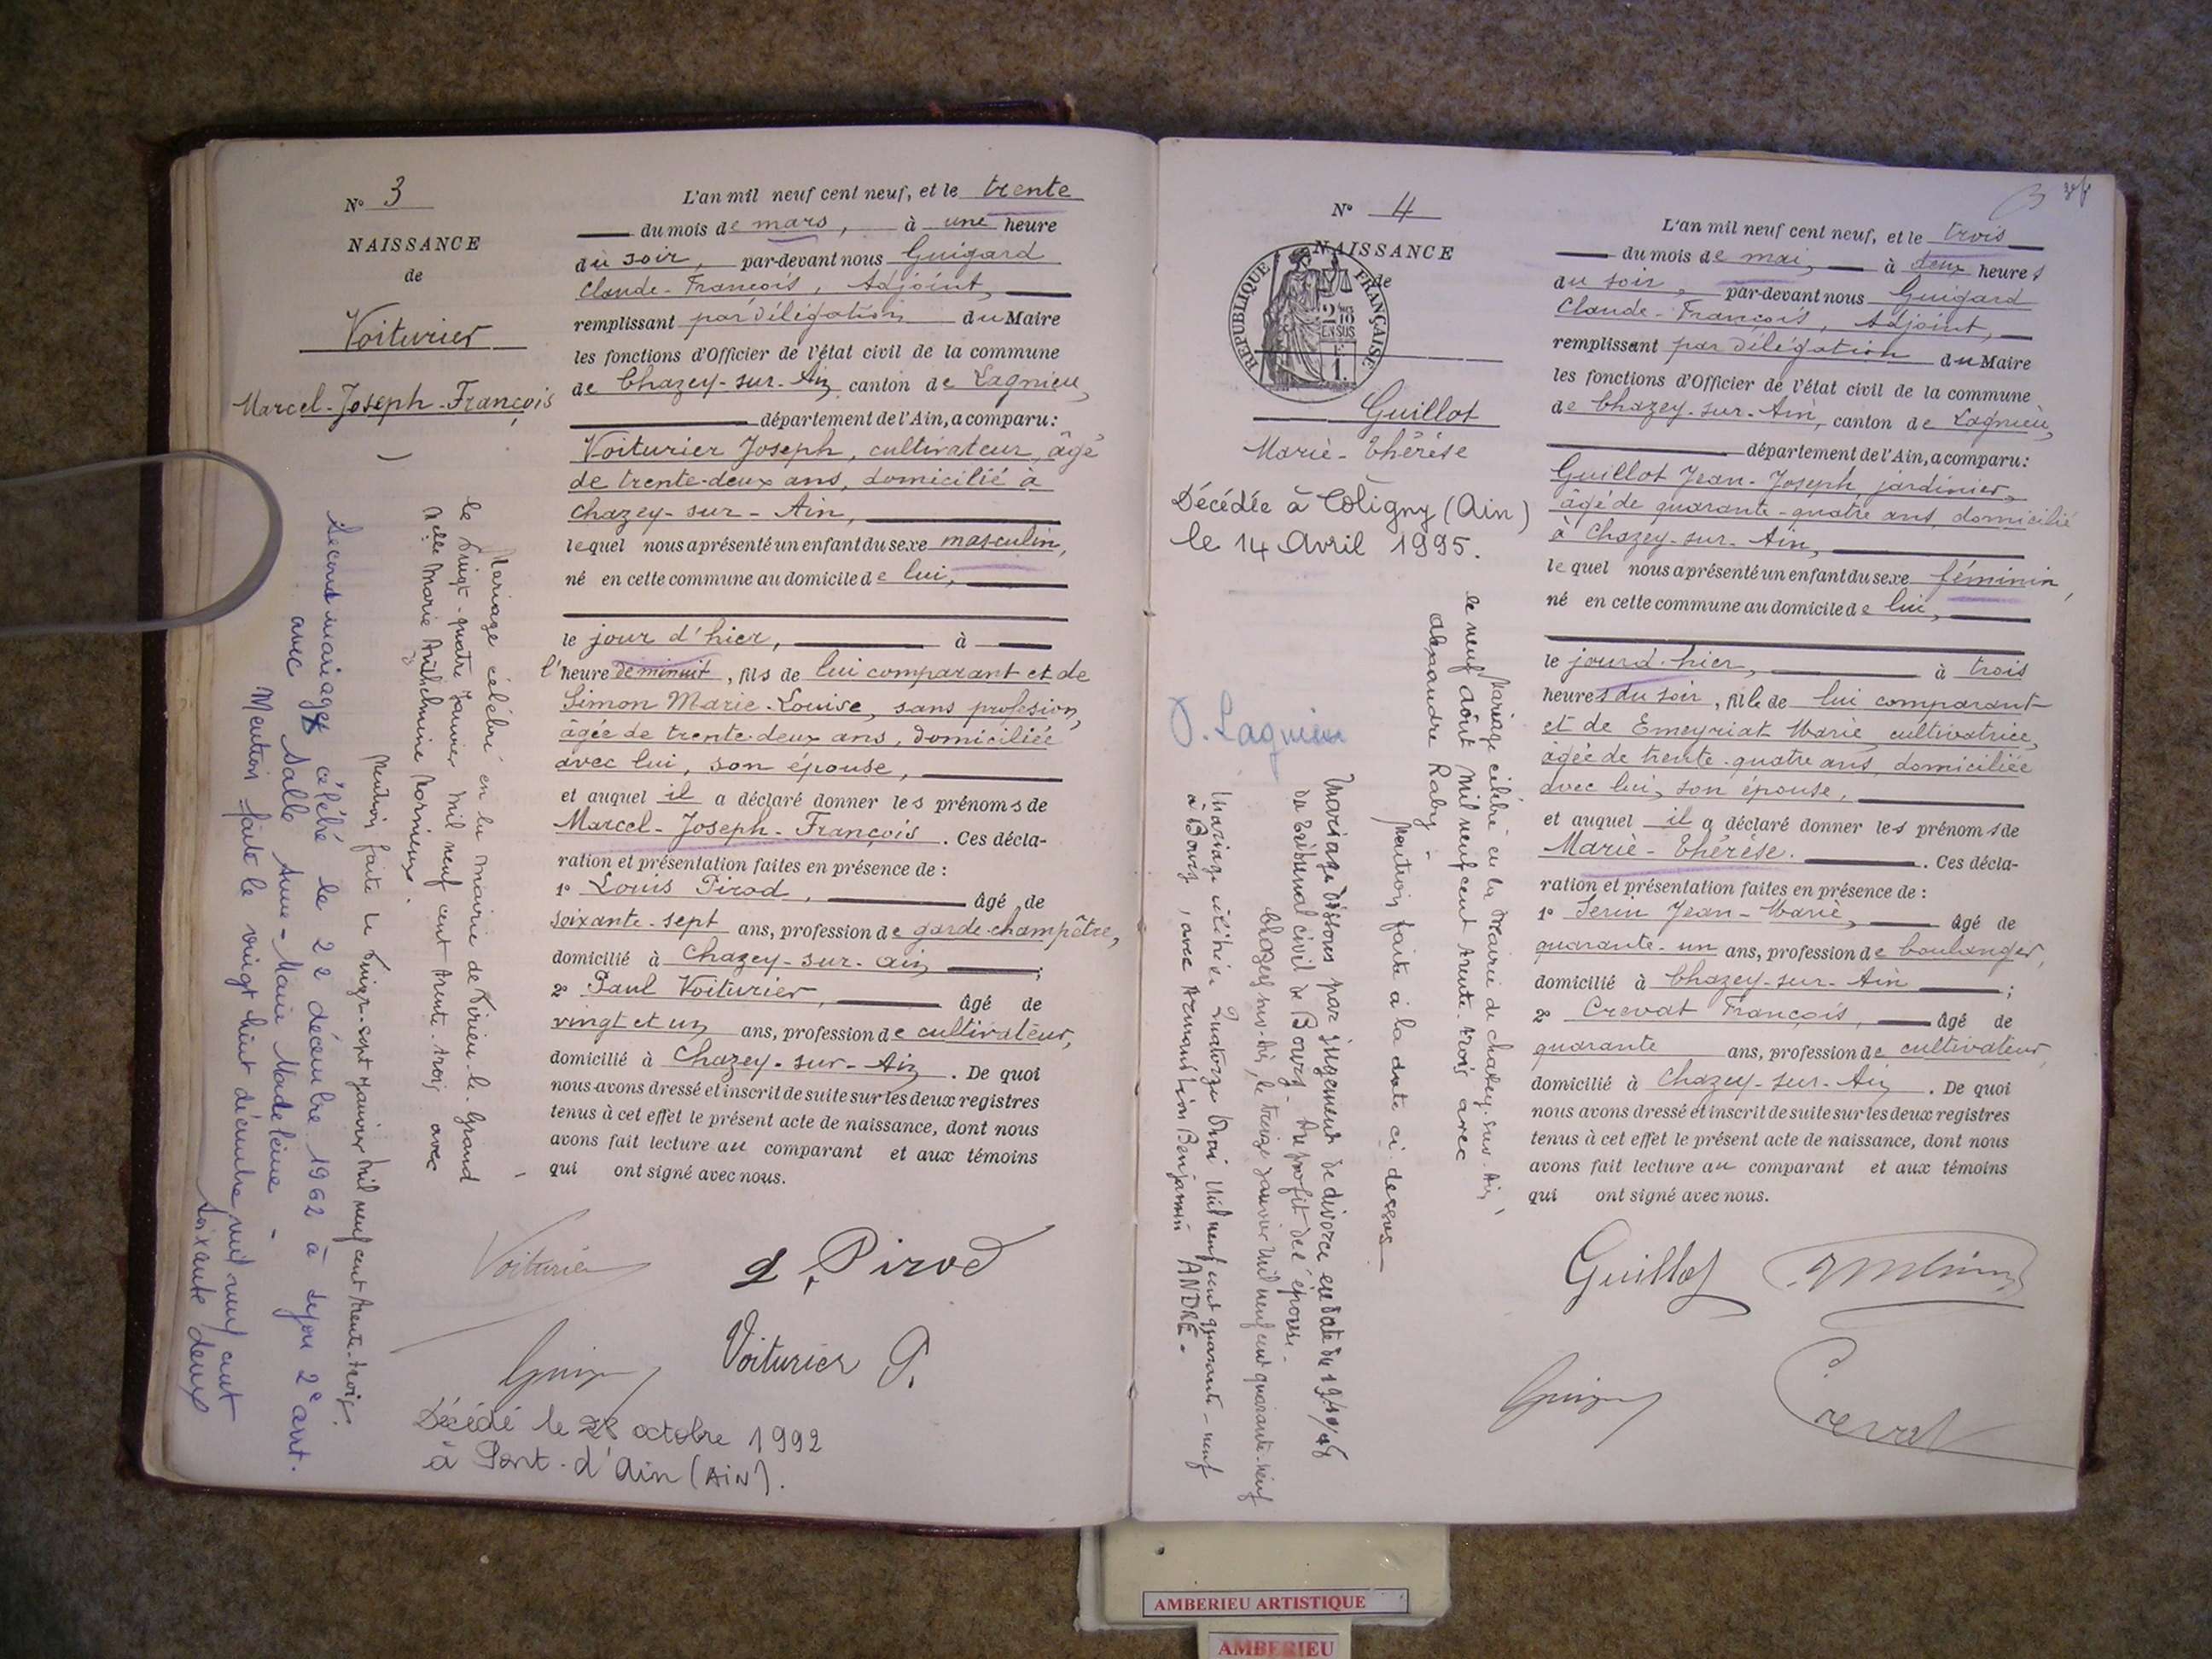 N° 3
NAISSANCE
de
Voiturier
Marcel-Joseph-François
Mariage célébré en la mairie de Virieu-le-Grand
le vingt-quatre Janvier mil neuf cent trente-trois avec
Melle Marie
Mention faite le vingt-sept Janvier mil neuf cent trente-trois.
Second mariage célébré le 22 décembre 1962 à Lyon 2e arrt.
avec Salle Anne-Marie Madeleine -
Mention faite le vingt huit décembre mil neuf cent
soixante deux
L'an mil neuf cent neuf, et le trente
du mois de mars, à une heure
du soir, par-devant nous Guigard
Claude-François, Adjoint,
remplissant par délégation du Maire
les fonctions d'Officier de l'état civil de la commune
de Chazey-sur-Ain canton de Lagnieu,
département de l'Ain, a comparu:
Voiturier Joseph, cultivateur, âgé
de trente-deux ans, domicilié à
Chazey-sur-Ain,
lequel nous a présenté un enfant du sexe masculin,
né en cette commune au domicile de lui,
le jour d'hier, à
l'heure de minuit, fils de lui comparant et de
Simon Marie-Louise, sans profesion,
âgée de trente-deux ans, domiciliée
avec lui, son épouse,
et auquel il a déclaré donner les prénoms de
Marcel-Joseph-François. Ces décla-
ration et présentation faites en présence de :
1° Louis Pirod, âgé de
soixante-sept ans, profession de garde-champêtre,
domicilié à Chazey-sur-ain ;
2° Paul Voiturier, âgé de
vingt et un ans, profession de cultivateur,
domicilié à Chazey-sur-Ain. De quoi
nous avons dressé et inscrit de suite sur les deux registres
tenus à cet effet le présent acte de naissance, dont nous
avons fait lecture au comparant et aux témoins
qui ont signé avec nous.
Voiturier
L. Pirod
Voiturier P.
Décédé le 28 octobre 1992
à Pont-d'Ain (AIN).
N° 4
NAISSANCE
de
REPUBLIQUE FRANÇAISE
2/10
EN SUS
Guillot
Marie-Thérèse
Décédée à Coligny (Ain)
le 14 Avril 1995.
Mariage célébré en la Mairie de Chazey-sur-Ain,
le neuf Août mil neuf cent trente-trois avec
Alexandre Raby -
Mention faite à la date ci-dessus
Mariage dissous par jugement de divorce en date du 19/10/48
du tribunal civil de Bourg - Au profit de l'épouse -
Chazey-sur-Ain, le treize janvier mil neuf cent quarante-neuf
Mariage célébré quatorze mil neuf cent quarante-neuf
à Bourg, avec Benjamin ANDRÉ -
D. Lagnieu
L'an mil neuf cent neuf, et le trois
du mois de mai, à deux heures
du soir, par-devant nous Guigard
Claude-François, Adjoint,
remplissant par délégation du Maire
les fonctions d'Officier de l'état civil de la commune
de Chazey-sur-Ain, canton de Lagnieu,
département de l'Ain, a comparu:
Guillot Jean-Joseph, jardinier,
âgé de quarante-quatre ans, domicilié
à Chazey-sur-Ain,
lequel nous a présenté un enfant du sexe féminin,
né en cette commune au domicile de lui,
le jour d'hier, à trois
heures du soir, fille de lui comparant
et de Emeyriat Marie, cultivatrice,
âgée de trente-quatre ans, domiciliée
avec lui, son épouse,
et auquel il a déclaré donner les prénoms de
Marie-Thérèse. Ces décla-
ration et présentation faites en présence de :
1° Serin Jean-Marie, âgé de
quarante-un ans, profession de boulanger,
domicilié à Chazey-sur-Ain ;
2° Crevat François, âgé de
quarante ans, profession de cultivateur,
domicilié à Chazey-sur-Ain. De quoi
nous avons dressé et inscrit de suite sur les deux registres
tenus à cet effet le présent acte de naissance, dont nous
avons fait lecture au comparant et aux témoins
qui ont signé avec nous.
Guillot
Crevat
AMBERIEU ARTISTIQUE
AMBERIEU